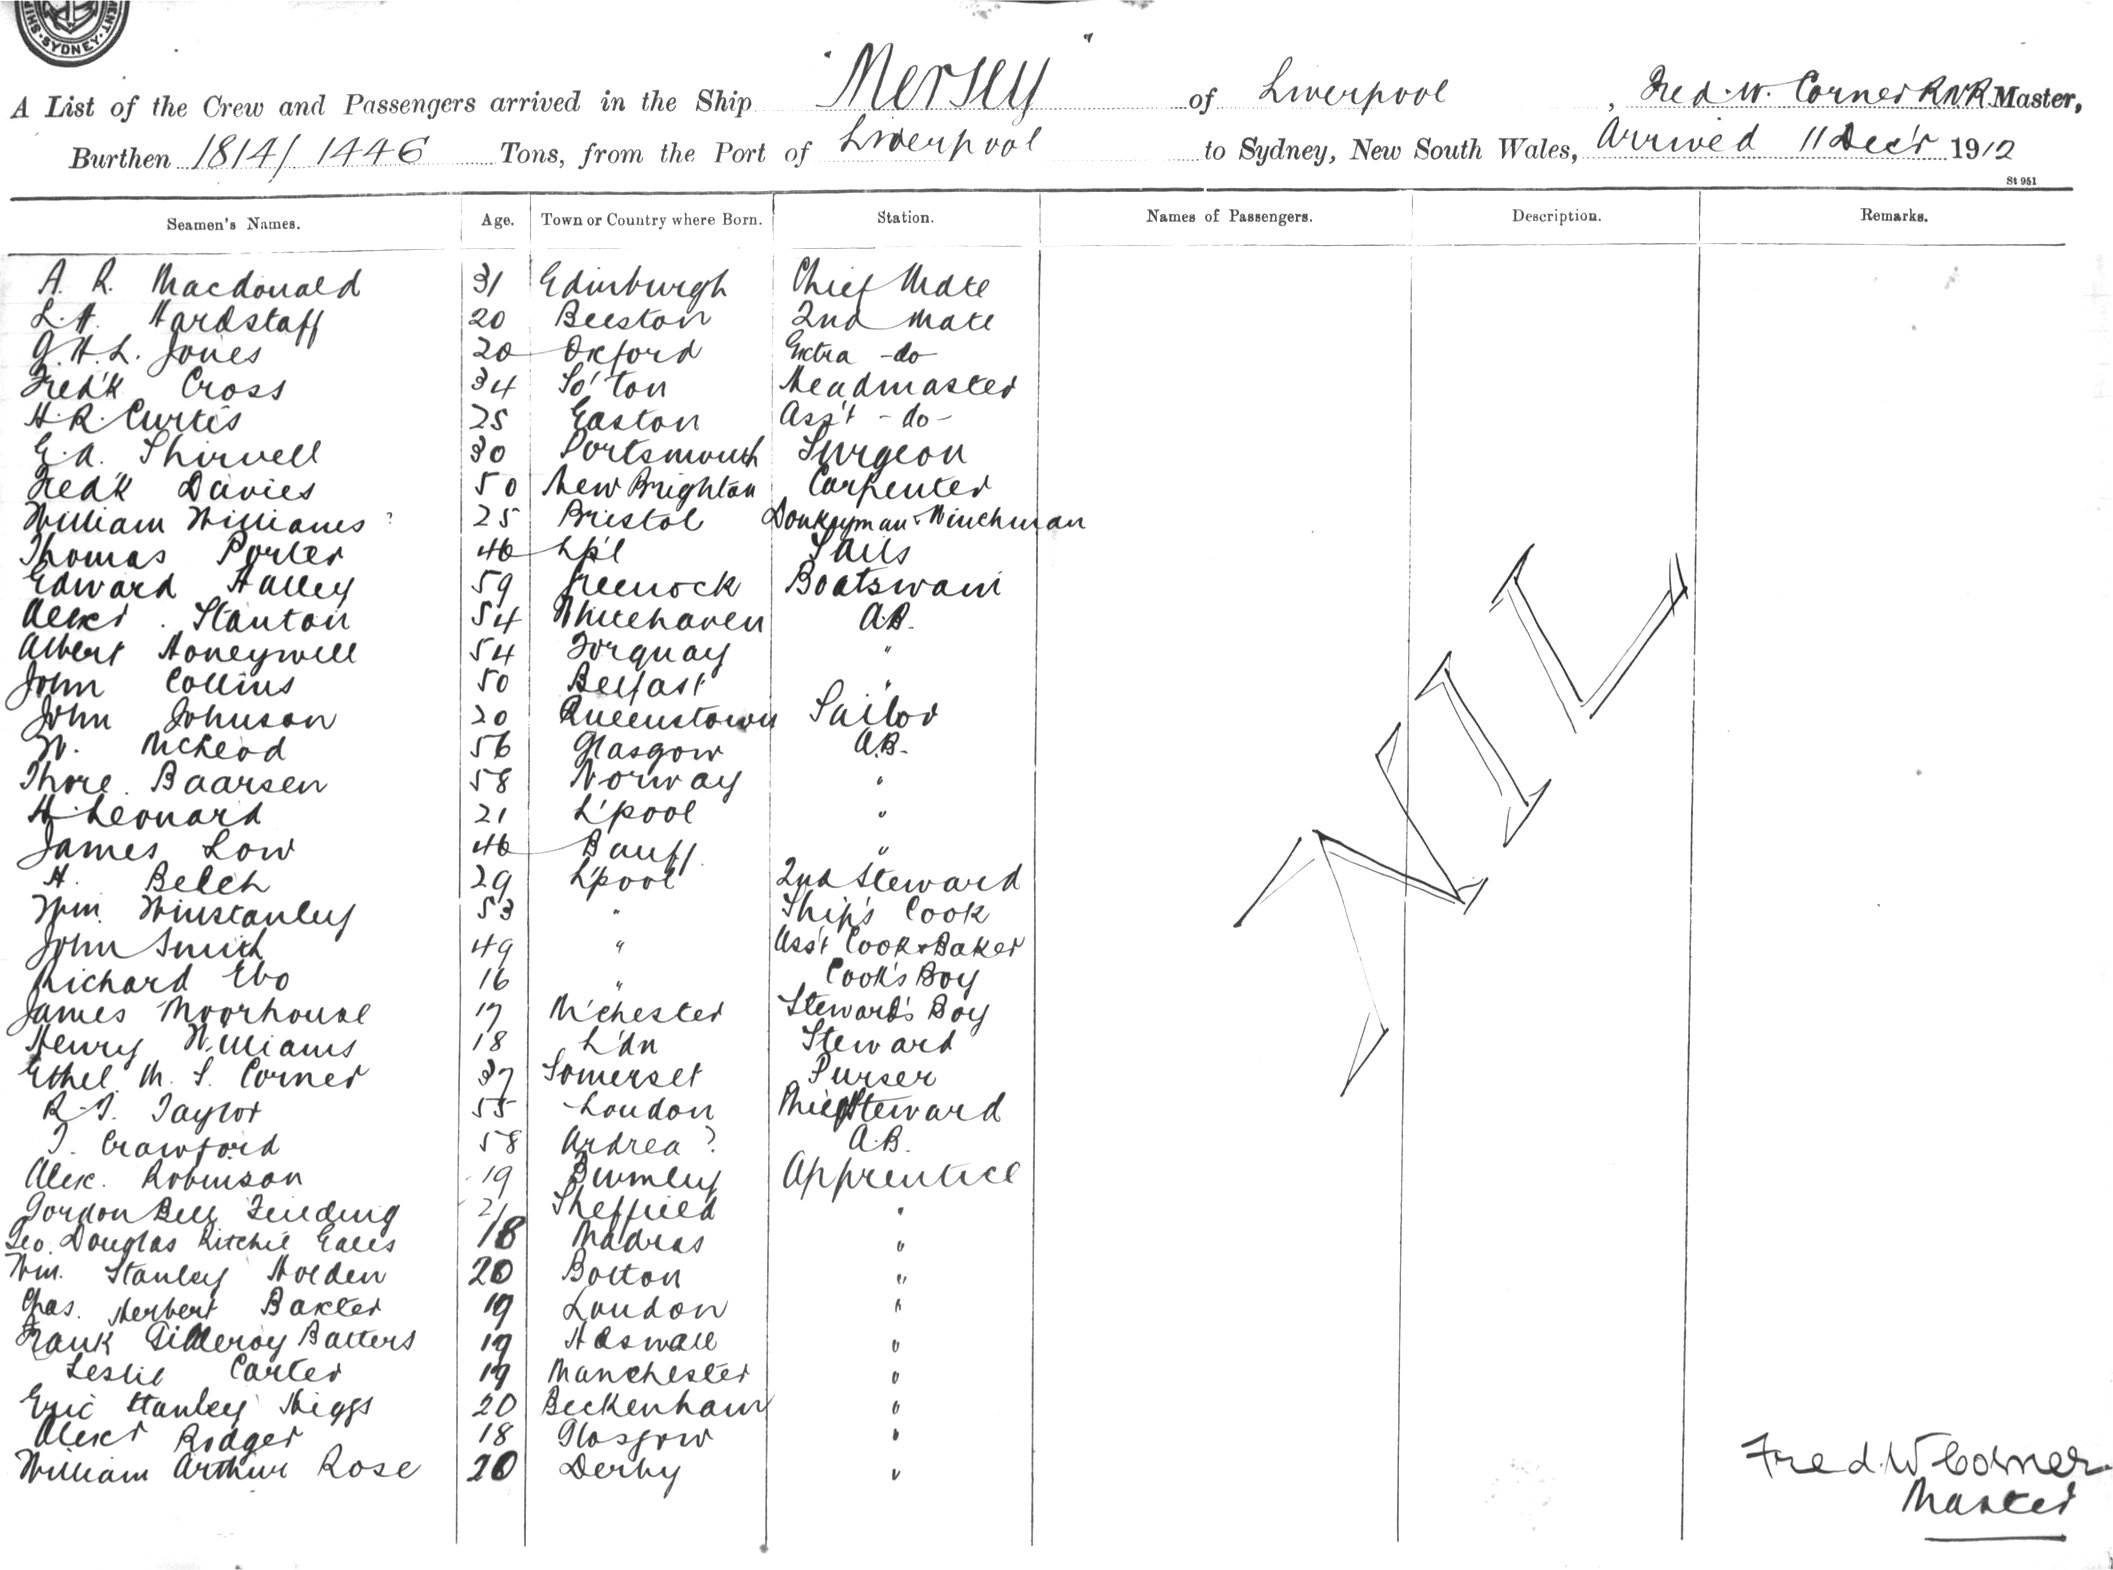 MENT. SHIP
SYDNEY
A List of the Crew and Passengers arrived in the Ship "Mersey" of Liverpool, Fred. W. Corner RNR Master,
Burthen 1814/1446 Tons, from the Port of Liverpool to Sydney, New South Wales, Arrived 11 Dec'r 1912
St 951
Seamen's Names. Age. Town or Country where Born. Station. Names of Passengers. Description. Remarks.
A. R. Macdonald 31 Edinburgh Chief Mate
L. H. Hardstaff 20 Beeston 2nd Mate
G. H. L. Jones 20 Oxford Extra -do-
Fred'k Cross 34 So'ton Headmaster
H. R. Curtis 25 Easton Ass't -do-
E. A. Shirvell 30 Portsmouth Surgeon
Fred'k Davies 50 New Brighton Carpenter
William Williams ? 25 Bristol Donkeyman & Winchman
Thomas Porter 46 Lp'l Sails
Edward Halley 59 Greenock Boatswain
Alexr. Stanton 54 Whitehaven A.B.
Albert Honeywill 54 Torquay "
John Collins 50 Belfast "
John Johnson 20 Queenstown Sailor
W. McLeod 56 Glasgow A.B.
Thore Baarsen 58 Norway "
H. Leonard 21 L'pool "
James Low 46 Banff "
H. Belch 29 L'pool 2nd Steward
Wm. Winstanley 53 " Ship's Cook
John Smith 49 " Ass't Cook & Baker
Richard Ebo 16 " Cook's Boy
James Moorhouse 17 M'chester Steward's Boy
Henry Williams 18 L'dn Steward
Ethel M. S. Corner 37 Somerset Purser
R. T. Taylor 55 London Chief Steward
T. Crawford 58 Ardrea ? A.B.
Alex. Robinson 19 Burnley Apprentice
Gordon Bell Feilding 21 Sheffield "
Geo. Douglas Ritchie Eales 18 Madras "
Wm. Stanley Holden 20 Bolton "
Chas. Herbert Baxter 19 London "
Frank Gilleroy Batters 19 Heswall "
Leslie Carter 19 Manchester "
Eric Stanley Higgs 20 Beckenham "
Alexr Rodger 18 Glasgow "
William Arthur Rose 20 Derby "
NIL
Fred. W Corner
Master